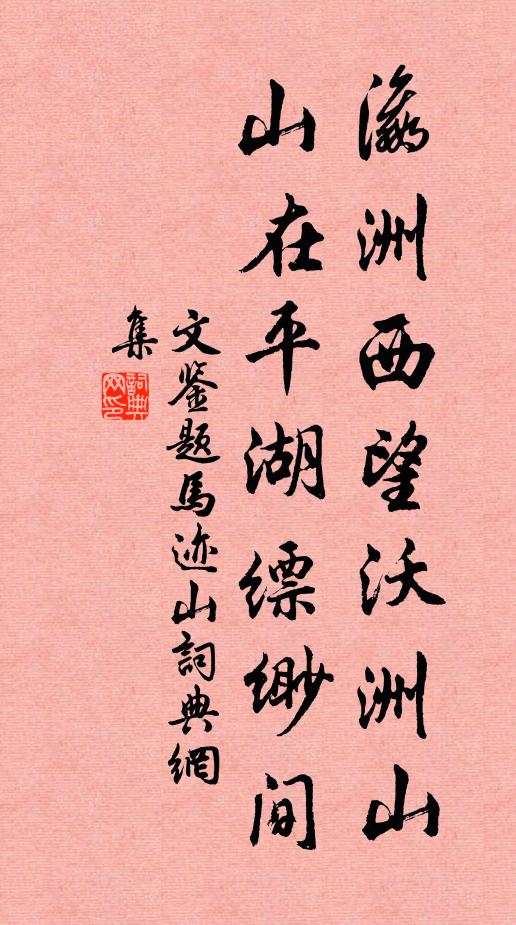 瀛洲西望沃洲山
山在平湖缥缈间
文鉴题馬迹山詞典網
集
詞典網印